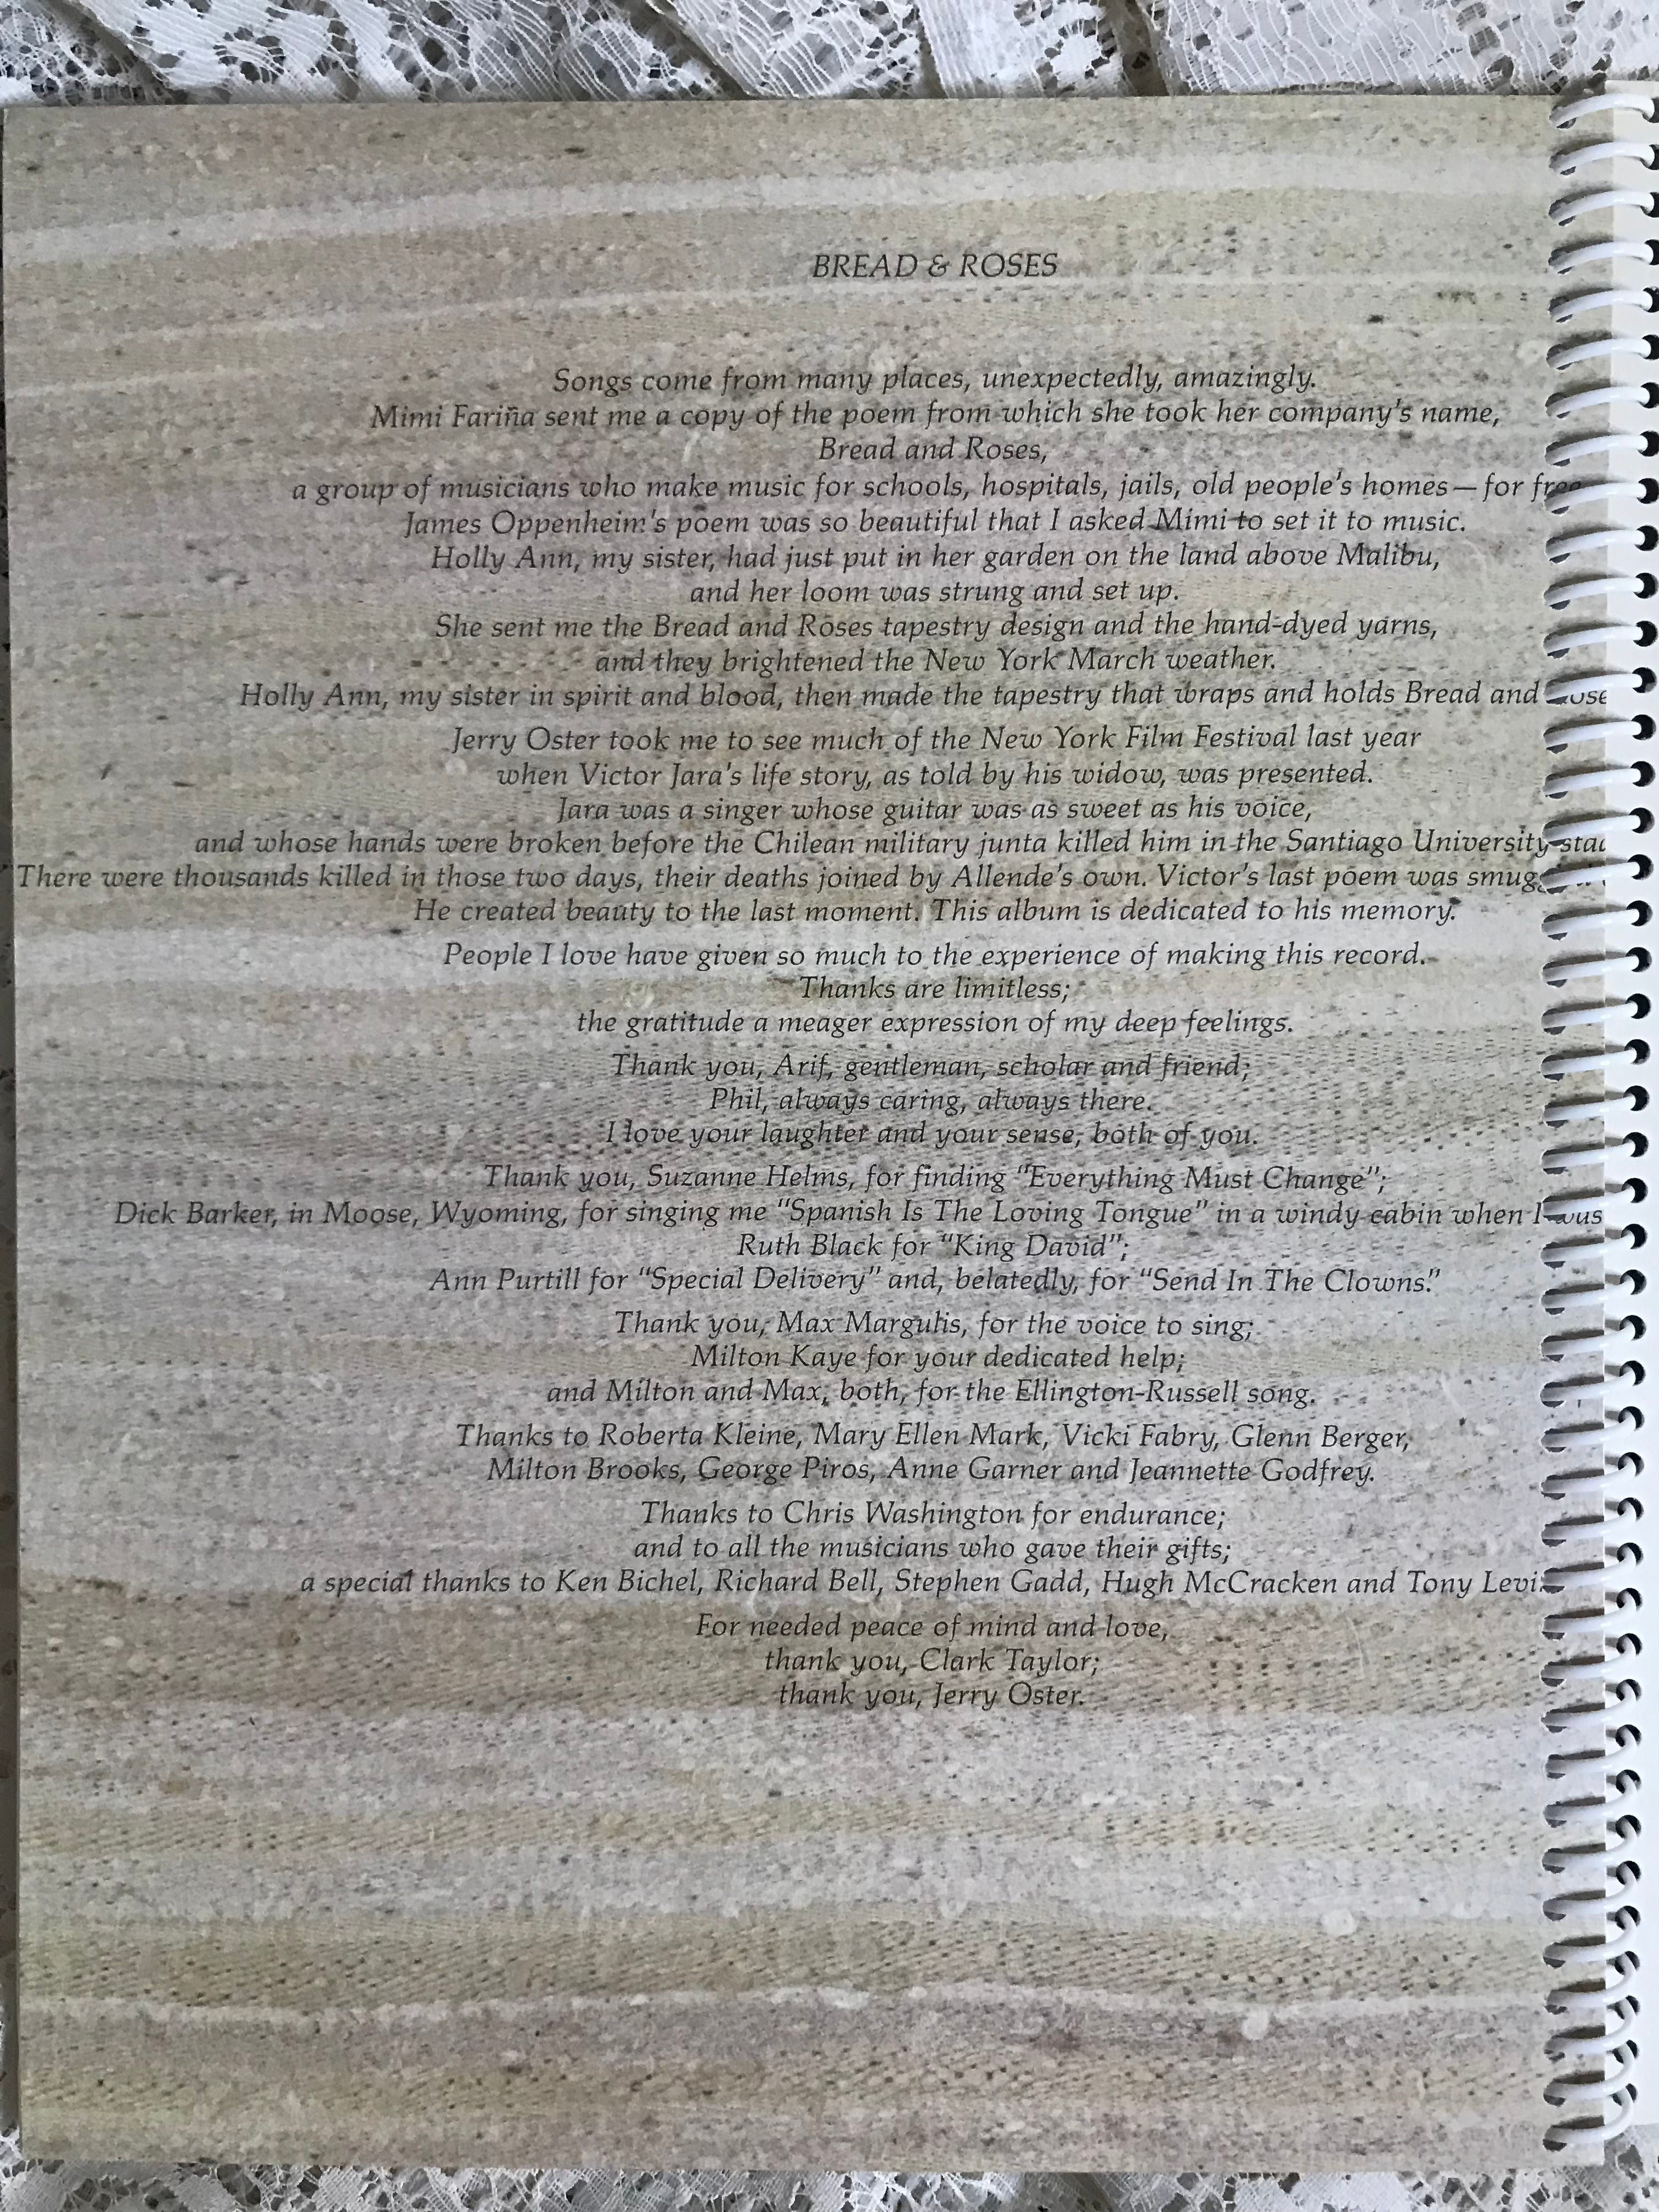 BREAD & ROSES
Songs come from many places, unexpectedly, amazingly.
Mimi Fariña sent me a copy of the poem from which she took her company's name,
Bread and Roses,
a group of musicians who make music for schools, hospitals, jails, old people's homes—for free
James Oppenheim's poem was so beautiful that I asked Mimi to set it to music.
Holly Ann, my sister, had just put in her garden on the land above Malibu,
and her loom was strung and set up.
She sent me the Bread and Roses tapestry design and the hand-dyed yarns,
and they brightened the New York March weather.
Holly Ann, my sister in spirit and blood, then made the tapestry that wraps and holds Bread and
Jerry Oster took me to see much of the New York Film Festival last year
when Victor Jara's life story, as told by his widow, was presented.
Jara was a singer whose guitar was as sweet as his voice,
and whose hands were broken before the Chilean military junta killed him in the Santiago University
There were thousands killed in those two days, their deaths joined by Allende's own. Victor's last poem was
He created beauty to the last moment. This album is dedicated to his memory.
People I love have given so much to the experience of making this record.
Thanks are limitless;
the gratitude a meager expression of my deep feelings.
Thank you, Arif, gentleman, scholar and friend;
Phil, always caring, always there.
I love your laughter and your sense, both of you.
Thank you, Suzanne Helms, for finding "Everything Must Change";
Dick Barker, in Moose, Wyoming, for singing me "Spanish Is The Loving Tongue" in a windy cabin when I was
Ruth Black for "King David";
Ann Purtill for "Special Delivery" and, belatedly, for "Send In The Clowns."
Thank you, Max Margulis, for the voice to sing;
Milton Kaye for your dedicated help;
and Milton and Max, both, for the Ellington-Russell song.
Thanks to Roberta Kleine, Mary Ellen Mark, Vicki Fabry, Glenn Berger,
Milton Brooks, George Piros, Anne Garner and Jeannette Godfrey.
Thanks to Chris Washington for endurance;
and to all the musicians who gave their gifts;
a special thanks to Ken Bichel, Richard Bell, Stephen Gadd, Hugh McCracken and Tony
For needed peace of mind and love,
thank you, Clark Taylor;
thank you, Jerry Oster.